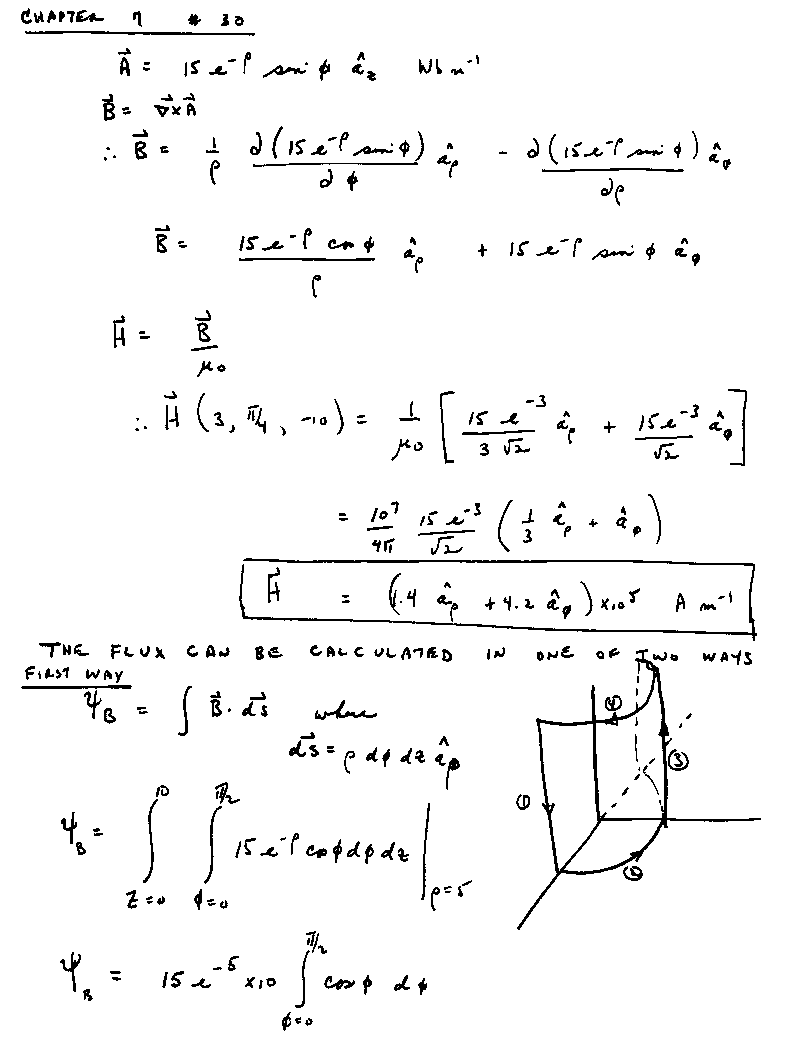 CHAPTER 7 # 30
A⃗ = 15 e^-ρ sin φ â_z Wb m^-1
B⃗ = ∇⃗×A⃗
∴ B⃗ = 1/ρ ∂(15 e^-ρ sin φ)/∂φ â_ρ - ∂(15 e^-ρ sin φ)/∂ρ â_φ
B⃗ = 15 e^-ρ cos φ/ρ â_ρ + 15 e^-ρ sin φ â_φ
H⃗ = B⃗/μ₀
∴ H⃗ (3, π/4, -10) = 1/μ₀ [15 e^-3/3√2 â_ρ + 15 e^-3/√2 â_φ]
= 10^7/4π 15 e^-3/√2 (1/3 â_ρ + â_φ)
H⃗ = (1.4 â_ρ + 4.2 â_φ) x10^5 A m^-1
THE FLUX CAN BE CALCULATED IN ONE OF TWO WAYS
FIRST WAY
Ψ_B = ∫ B⃗ · ds⃗ where
ds⃗ = ρ dφ dz â_ρ
Ψ_B = ∫_{z=0}^{10} ∫_{φ=0}^{π/2} 15 e^-ρ cos φ dφ dz |_{ρ=5}
Ψ_B = 15 e^-5 x10 ∫_{φ=0}^{π/2} cos φ dφ
④
③
①
②